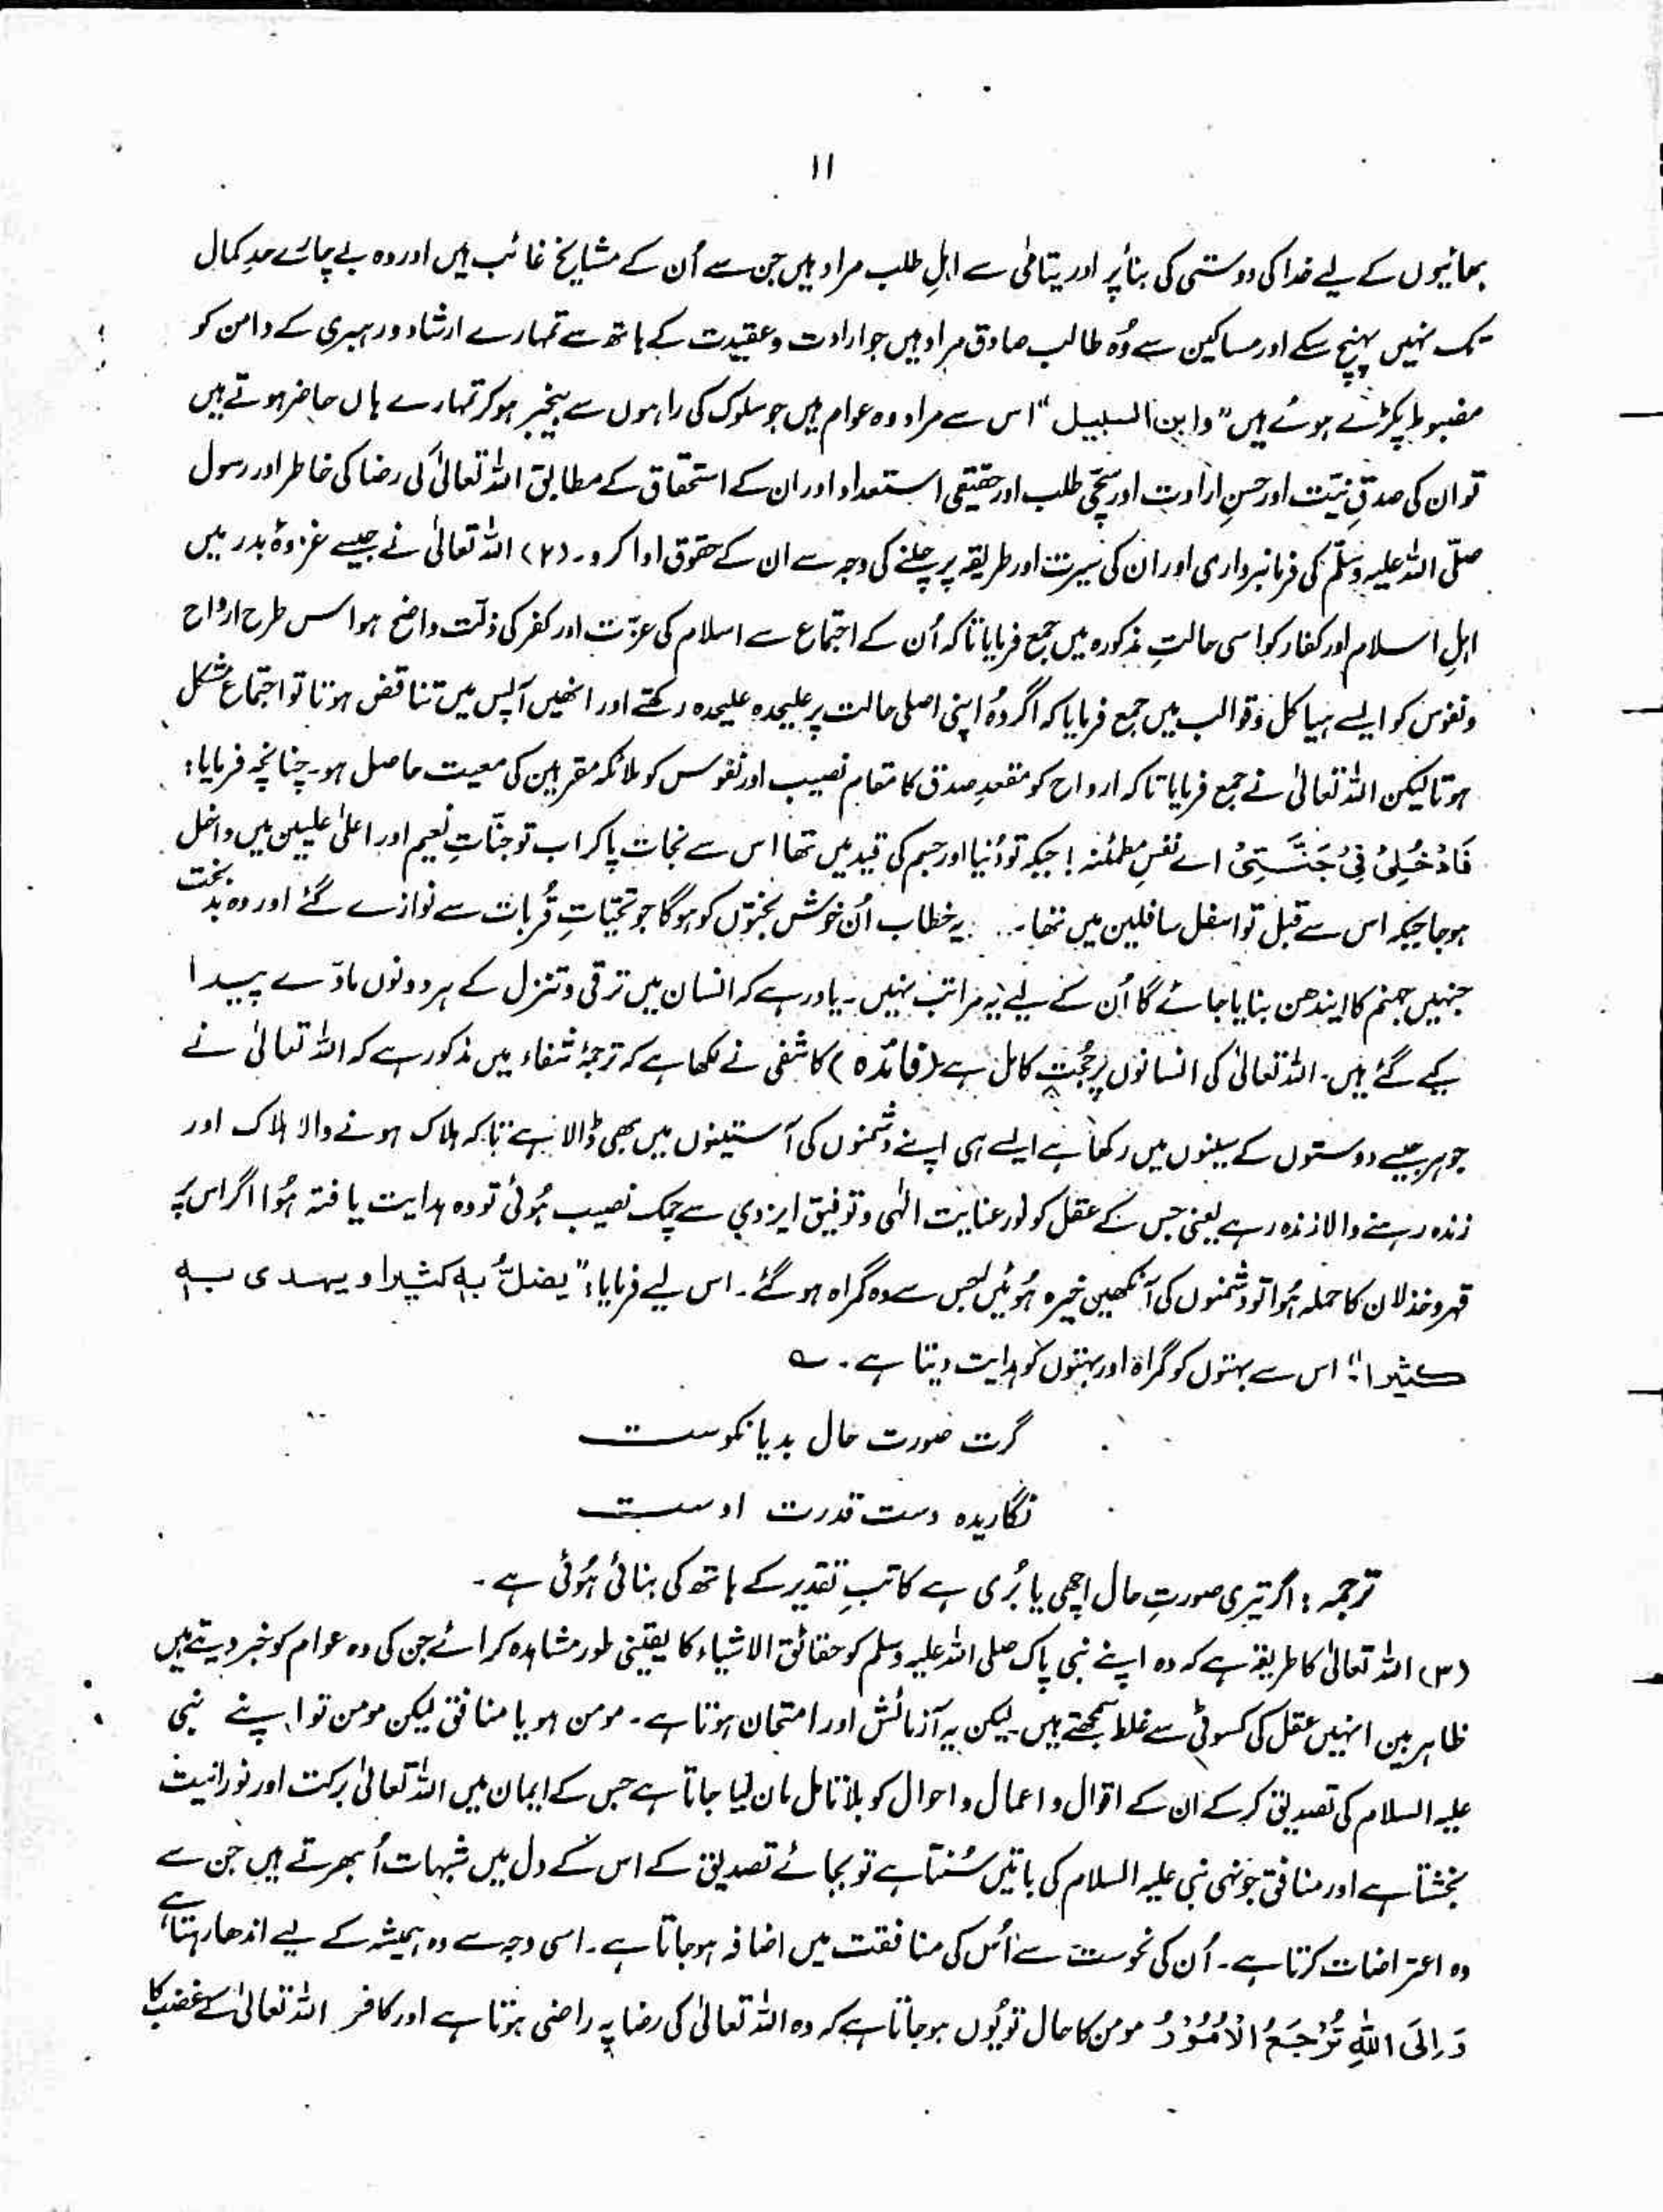 ۱۱
بھائیوں کے لیے خدا کی دوستی کی بنأ پر اور یتامٰی سے اہلِ طلب مراد ہیں جن سے اُن کے مشایخ غائب ہیں اور وہ بے چارے حدِ کمال
تک نہیں پہنچ سکے اور مساکین سے وُہ طالب صادق مراد ہیں جو ارادت و عقیدت کے ہاتھ سے تمہارے ارشاد و رہبری کے دامن کو
مضبوط پکڑے ہوئے ہیں "وابن السبیل" اس سے مراد وہ عوام ہیں جو سلوک کی راہوں سے بیخبر ہو کر تمہارے ہاں حاضر ہوتے ہیں
تو ان کی صدقِ نیّت اور حسنِ ارادت اور سچّی طلب اور حقیقی استعداد اور ان کے استحقاق کے مطابق اللہ تعالیٰ کی رضا کی خاطر اور رسول
صلّی اللہ علیہ وسلّم کی فرمانبرداری اور ان کی سیرت اور طریقہ پر چلنے کی وجہ سے ان کے حقوق ادا کرو۔ (۲) اللہ تعالیٰ نے جیسے غزوۂ بدر میں
اہلِ اسلام اور کفار کو اسی حالتِ مذکورہ میں جمع فرمایا تاکہ اُن کے اجتماع سے اسلام کی عزّت اور کفر کی ذلّت واضح ہو اس طرح ارواح
و نفوس کو ایسے ہیاکل و قوالب میں جمع فرمایا کہ اگر وُہ اپنی اصلی حالت پر علیحدہ علیحدہ رکھتے اور انھیں آپس میں تناقض ہوتا تو اجتماع مشکل
ہوتا لیکن اللہ تعالیٰ نے جمع فرمایا تاکہ ارواح کو مقعدِ صدق کا مقام نصیب اور نفوس کو ملائکہ مقربین کی معیت حاصل ہو۔ چنانچہ فرمایا:
فَادْخُلِیْ فِیْ جَنَّتِیْ اے نفسِ مطمئنہ! جبکہ تو دُنیا اور جسم کی قید میں تھا اس سے نجات پاکر اب تو جنّاتِ نعیم اور اعلیٰ علیین میں داخل
ہو جا جبکہ اس سے قبل تو اسفل سافلین میں تھا۔ یہ خطاب اُن خوش بختوں کو ہوگا جو تحیّاتِ قُربات سے نوازے گئے اور وہ بد بخت
جنہیں جہنم کا ایندھن بنایا جائے گا اُن کے لیے یہ مراتب نہیں۔ یاد رہے کہ انسان میں ترقی و تنزل کے ہر دونوں مادّے پیدا
کیے گئے ہیں۔ اللہ تعالیٰ کی انسانوں پر حُجّت کامل ہے (فائدہ) کاشفی نے لکھا ہے کہ ترجمۂ شفاء میں مذکور ہے کہ اللہ تعالیٰ نے
جوہر جیسے دوستوں کے سینوں میں رکھا ہے ایسے ہی اپنے دشمنوں کی آستینوں میں بھی ڈالا ہے تاکہ ہلاک ہونے والا ہلاک اور
زندہ رہنے والا زندہ رہے یعنی جس کے عقل کو نور عنایت الٰہی و توفیق ایزدی سے چمک نصیب ہُوئی تو وہ ہدایت یافتہ ہُوا اگر اس پر
قہر و خذلان کا حملہ ہُوا تو دشمنوں کی آنکھیں خیرہ ہُوئیں جس سے وہ گمراہ ہو گئے۔ اس لیے فرمایا: "یضلُّ بہ کثیرا و یہدی بہ
کثیرا" اس سے بہتوں کو گمراہ اور بہتوں کو ہدایت دیتا ہے۔ ؎
گرت صورت حال بد یا نکوست
نگاریدہ دست قدرت اوست
ترجمہ: اگر تیری صورتِ حال اچھی یا بُری ہے کاتبِ تقدیر کے ہاتھ کی بنائی ہُوئی ہے۔
(۳) اللہ تعالیٰ کا طریقہ ہے کہ وہ اپنے نبی پاک صلی اللہ علیہ وسلم کو حقائق الاشیاء کا یقینی طور مشاہدہ کرائے جن کی وہ عوام کو خبر دیتے ہیں
ظاہر بین انہیں عقل کی کسوٹی سے غلط سمجھتے ہیں لیکن یہ آزمائش اور امتحان ہوتا ہے۔ مومن ہو یا منافق لیکن مومن تو اپنے نبی
علیہ السلام کی تصدیق کر کے ان کے اقوال و اعمال و احوال کو بلا تامل مان لیا جاتا ہے جس کے ایمان میں اللہ تعالیٰ برکت اور نورانیت
بخشتا ہے اور منافق جونہی نبی علیہ السلام کی باتیں سُنتا ہے تو بجائے تصدیق کے اس کے دل میں شبہات اُبھرتے ہیں جن سے
وہ اعتراضات کرتا ہے۔ اُن کی نحوست سے اُس کی منافقت میں اضافہ ہو جاتا ہے۔ اسی وجہ سے وہ ہمیشہ کے لیے اندھا رہتا ہے
وَ اِلَی اللّٰہِ تُرْجَعُ الْاُمُوْرُ مومن کا حال تو یُوں ہو جاتا ہے کہ وہ اللہ تعالیٰ کی رضا پہ راضی ہوتا ہے اور کافر اللہ تعالیٰ کے غضب کا